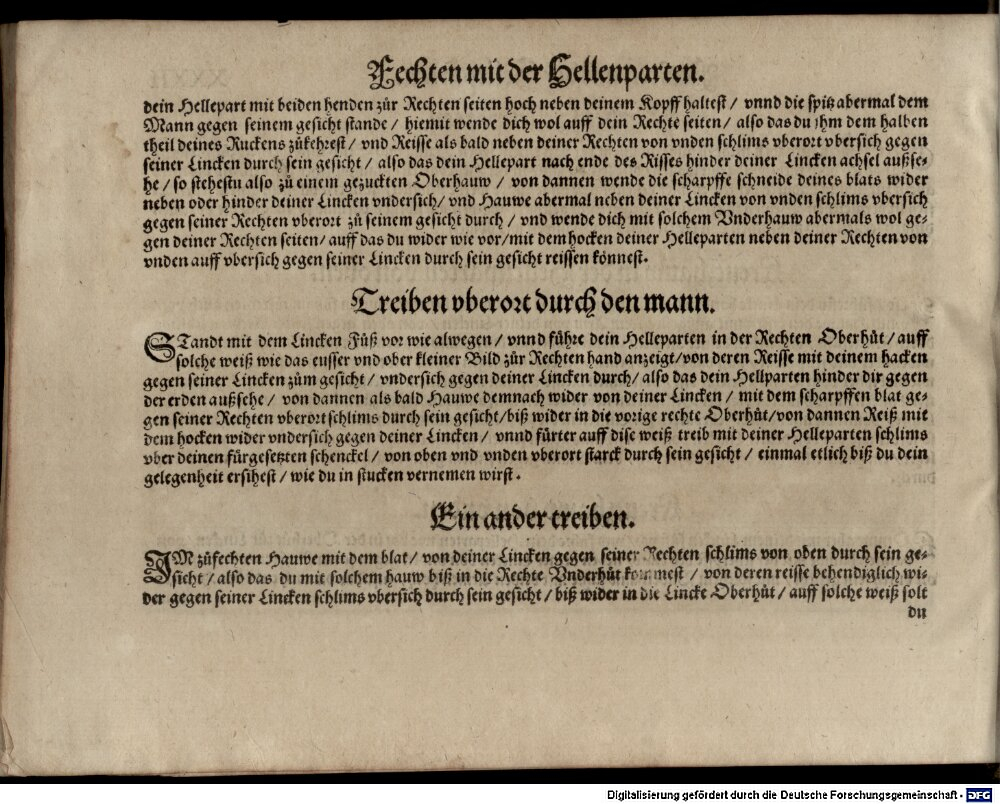 Fechten mit der Hellenparten.
dein Hellepart mit beiden henden zůr Rechten seiten hoch neben deinem Kopff haltest / vnnd die spitz abermal dem
Mann gegen seinem gesicht stande / hiemit wende dich wol auff dein Rechte seiten / also das du jhm dem halben
theil deines Ruckens zůkehrest / vnd Reisse als bald neben deiner Rechten von vnden schlims vberort vbersich gegen
seiner Lincken durch sein gesicht / also das dein Hellepart nach ende des Risses hinder deiner Lincken achsel außse-
he / so stehestu also zů einem gezuckten Oberhauw / von dannen wende die scharpffe schneide deines blats wider
neben oder hinder deiner Lincken vndersich / vnd Hauwe abermal neben deiner Lincken von vnden schlims vbersich
gegen seiner Rechten vberort zů seinem gesicht durch / vnd wende dich mit solchem Vnderhauw abermals wol ge-
gen deiner Rechten seiten / auff das du wider wie vor / mit dem hocken deiner Helleparten neben deiner Rechten von
vnden auff vbersich gegen seiner Lincken durch sein gesicht reissen könnest.
Treiben vberort durch den mann.
STandt mit dem Lincken Fůß vor wie alwegen / vnnd führe dein Helleparten in der Rechten Oberhůt / auff
solche weiß wie das eusser vnd ober kleiner Bild zůr Rechten hand anzeigt / von deren Reisse mit deinem hacken
gegen seiner Lincken zům gesicht / vndersich gegen deiner Lincken durch / also das dein Hellparten hinder dir gegen
der erden außsehe / von dannen als bald Hauwe demnach wider von deiner Lincken / mit dem scharpffen blat ge-
gen seiner Rechten vberort schlims durch sein gesicht / biß wider in die vorige rechte Oberhůt / von dannen Reiß mit
dem hocken wider vndersich gegen deiner Lincken / vnnd fürter auff dise weiß treib mit deiner Helleparten schlims
vber deinen fürgesetzten schenckel / von oben vnd vnden vberort starck durch sein gesicht / einmal etlich biß du dein
gelegenheit ersihest / wie du in stucken vernemen wirst.
Ein ander treiben.
IM zůfechten Hauwe mit dem blat / von deiner Lincken gegen seiner Rechten schlims von oben durch sein ge-
sicht / also das du mit solchem hauw biß in die Rechte Vnderhůt kommest / von deren reisse behendiglich wi-
der gegen seiner Lincken schlims vbersich durch sein gesicht / biß wider in die Lincke Oberhůt / auff solche weiß solt
du
Digitalisierung gefördert durch die Deutsche Forschungsgemeinschaft - DFG